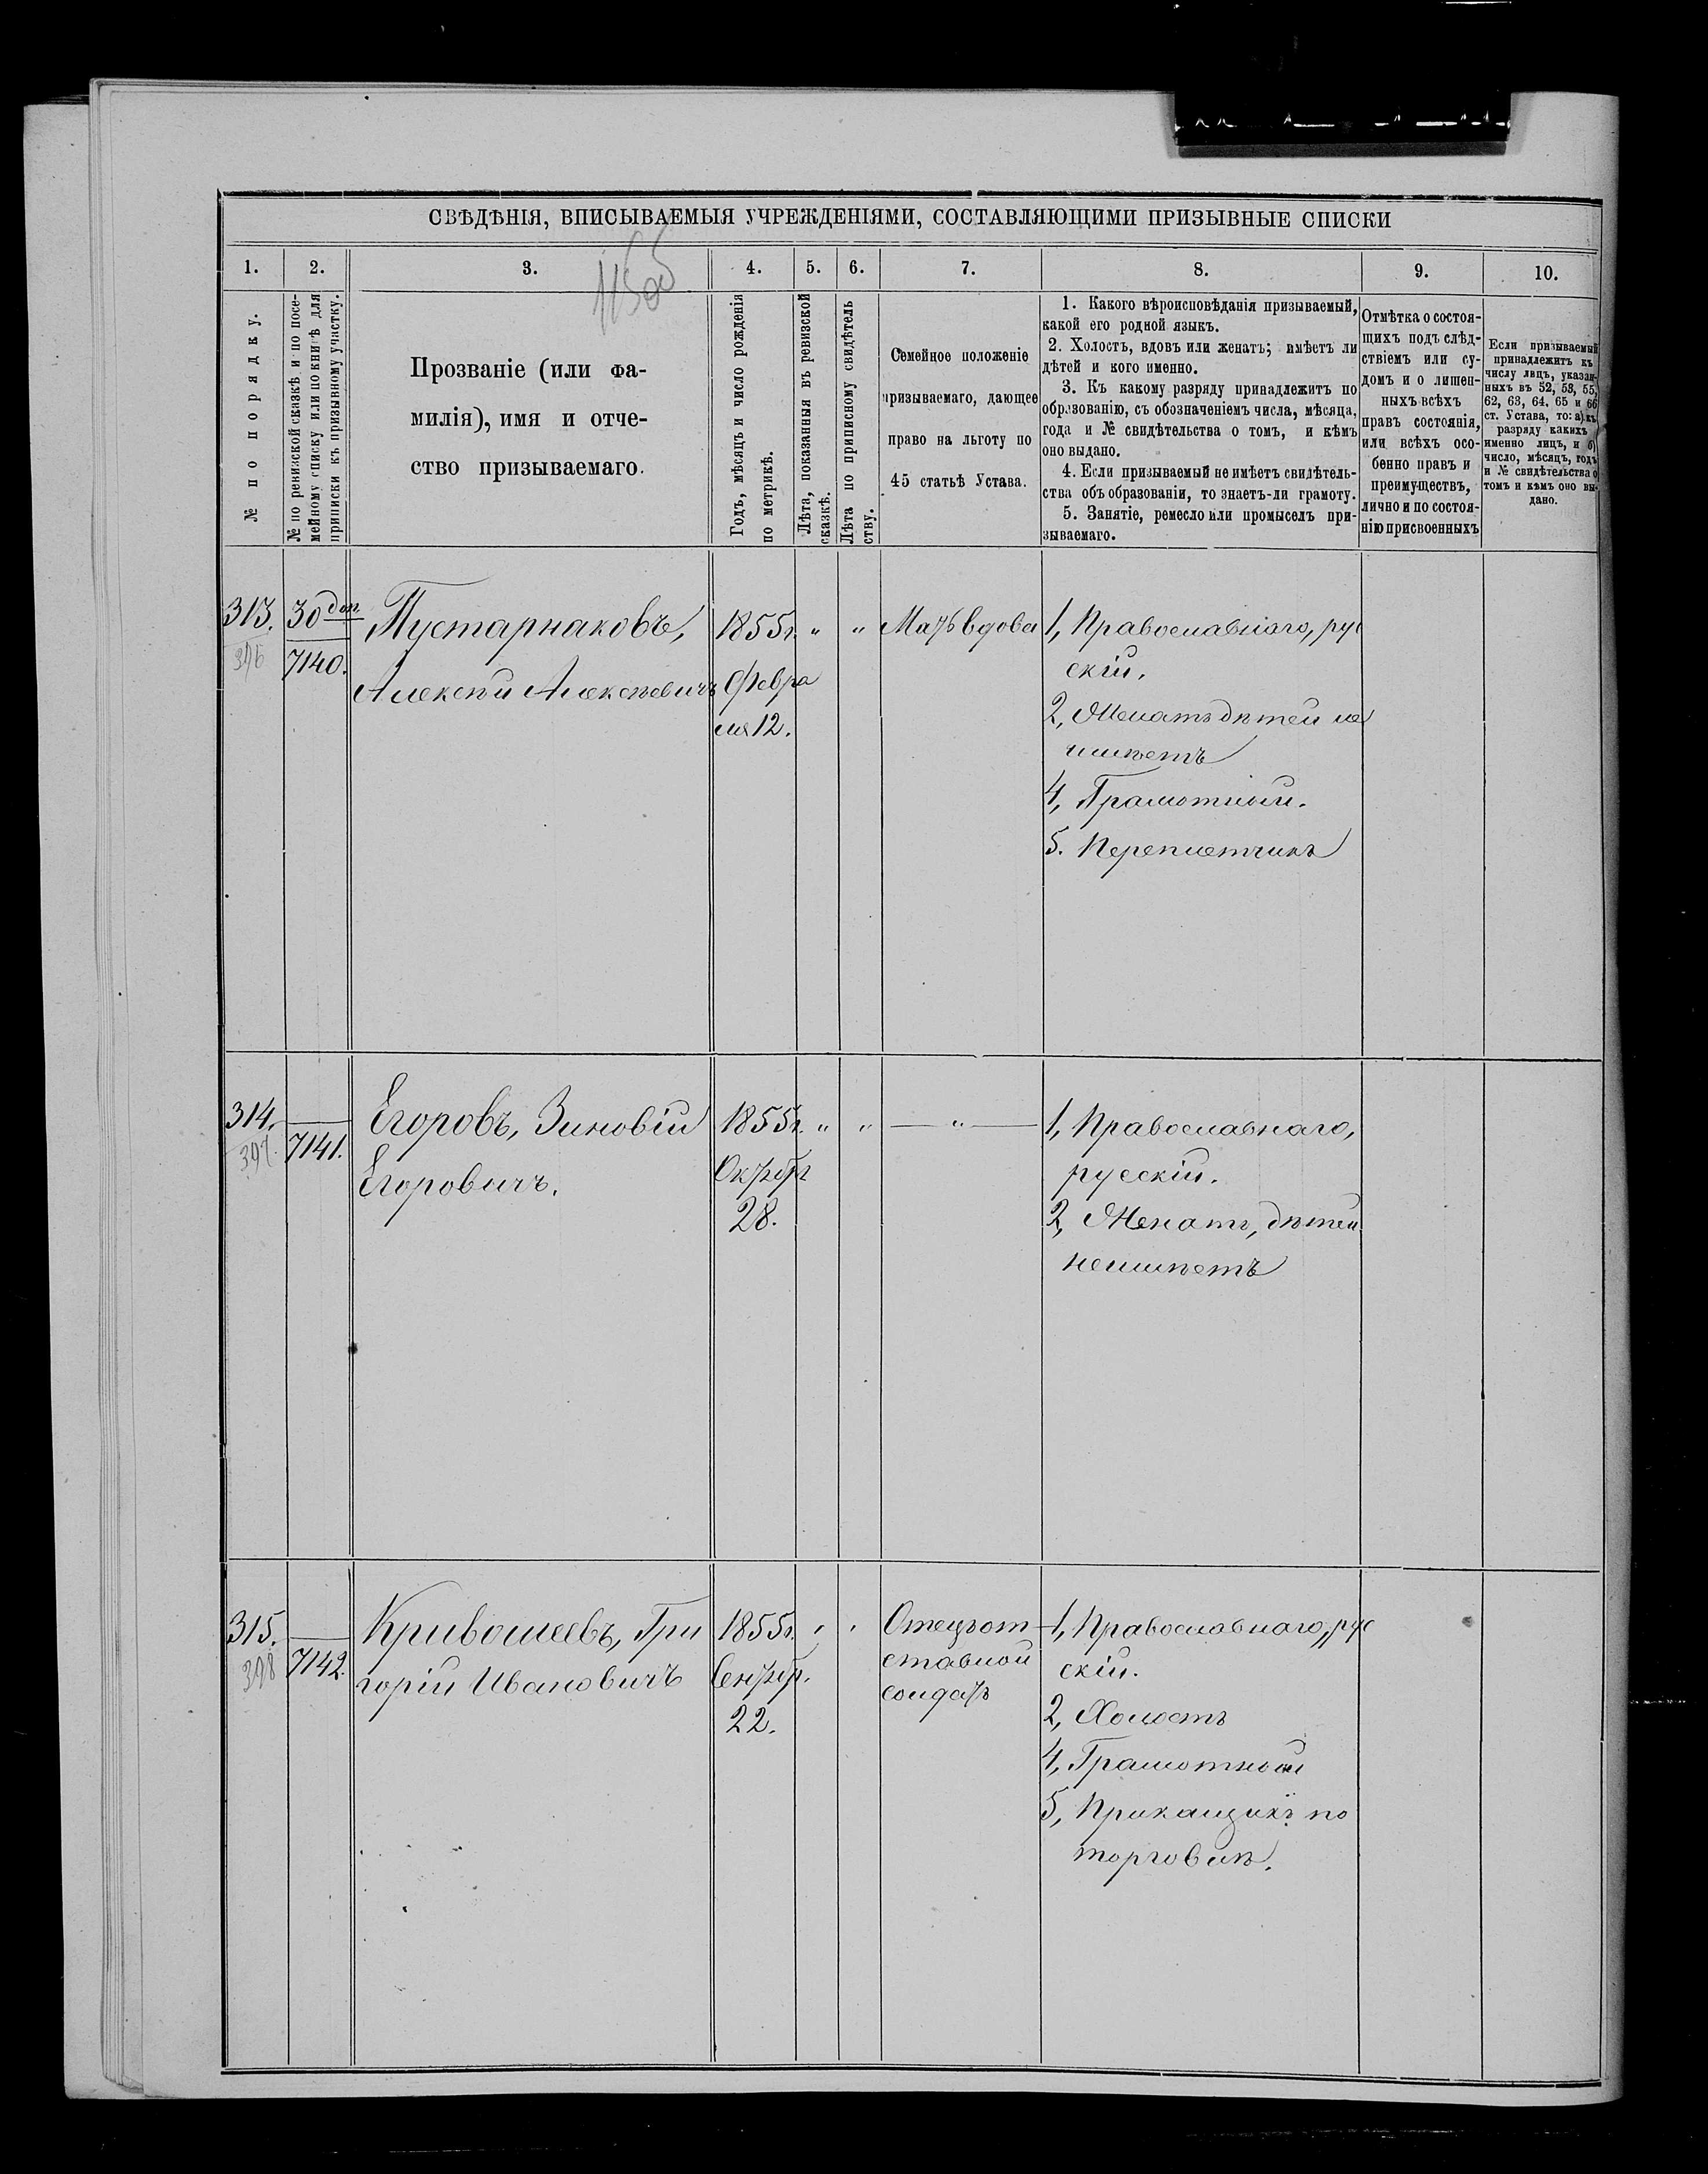 СВѢДѢНІЯ, ВПИСЫВАЕМЫЯ УЧРЕЖДЕНІЯМИ, СОСТАВЛЯЮЩИМИ ПРИЗЫВНЫЕ СПИСКИ
1.
2.
3.
4.
5.
6.
7.
8.
9.
10.
№ по порядку.
№ по ревизской сказкѣ и по посе-
мейному списку или по книгѣ для
приписки къ призывному участку.
Прозваніе (или фа-
милія), имя и отче-
ство призываемаго.
Годъ, мѣсяцъ и число рожденія
по метрикѣ.
Лѣта, показанныя въ ревизской
сказкѣ.
Лѣта по приписному свидѣтель
ству.
Семейное положеніе
призываемаго, дающее
право на льготу по
45 статьѣ Устава.
1. Какого вѣроисповѣданія призываемый,
какой его родной языкъ.
2. Холостъ, вдовъ или женатъ; имѣетъ ли
дѣтей и кого именно.
3. Къ какому разряду принадлежитъ по
образованію, съ обозначеніемъ числа, мѣсяца,
года и № свидѣтельства о томъ, и кѣмъ
оно выдано.
4. Если призываемый не имѣетъ свидѣтель-
ства объ образованіи, то знаетъ-ли грамоту.
5. Занятіе, ремесло или промыселъ при-
зываемаго.
Отмѣтка о состоя-
щихъ подъ слѣд-
ствіемъ или су-
домъ и о лишен-
ныхъ всѣхъ
правъ состоянія,
или всѣхъ осо-
бенно правъ и
преимуществъ,
лично и по состоя-
нію присвоенныхъ
Если призываемый
принадлежитъ къ
числу лицъ, указан-
ныхъ въ 52, 53, 55,
62, 63, 64, 65 и 66
ст. Устава, то: а) къ
разряду какихъ
именно лицъ, и б)
число, мѣсяцъ, годъ
и № свидѣтельства о
томъ и кѣмъ оно вы-
дано.
313.
396
30 доп.
7140.
Пустарнаковъ,
Алексѣй Алексѣевичъ
1855г.
Февра
ля 12.
"
"
Мать вдова
1, Православнаго, рус
скій.
2, Женатъ дѣтей не
имѣетъ
4, Грамотный.
5. Переплетчикъ
314.
397.
7141.
Егоровъ, Зиновій
Егоровичъ.
1855г.
Октбр
28.
"
"
— " —
1, Православнаго,
русскій.
2, Женатъ, дѣтей
неимѣетъ
315.
398
7142.
Кривошеевъ, Гри
горій Ивановичъ
1855г.
Сентбр.
22.
"
"
Отецъ от
ставной
солдатъ
1, Православнаго, рус
скій.
2, Холостъ
4, Грамотный
5, Прикащикъ по
торговлѣ.